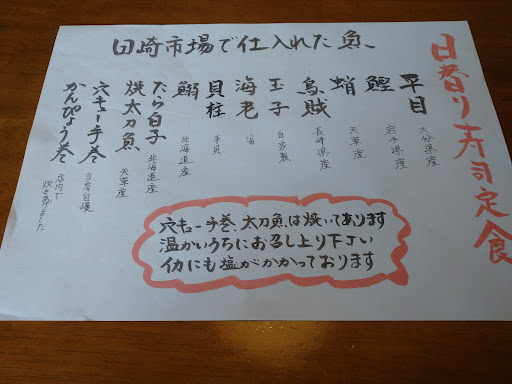 日替り寿司定食
田崎市場で仕入れた魚、
平目 大分県産
鰹 岩手県産
蛸 天草産
烏賊 長崎県産
玉子 自家製
海老 湯
貝柱 平貝
鰯 北海道産
たら白子 北海道産
焼太刀魚 天草産
穴キュー手巻 当店自慢
かんぴょう巻 店内で炊きあげました
穴キュー手巻、太刀魚は焼いてあります
温かいうちにお召し上り下さい
イカにも塩がかかっております